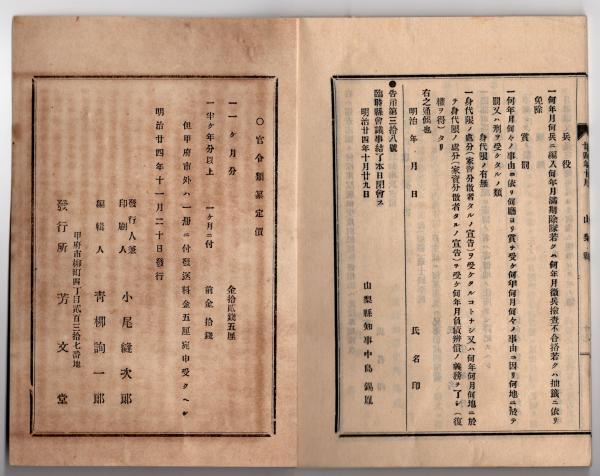 兵役
一何年月何兵ニ編入何年月滿期除隊若クハ何年月徵兵檢査不合格若クハ抽籤ニ依リ
免除
賞罰
一何年何月何々ノ事由ニ依リ何廳ヨリ賞ヲ受ケ何年何月何々ノ事由ニ因リ何地ニ於テ
罰又ハ刑ヲ受ケタルノ類
身代限ノ有無
一身代限ノ處分(家資分散者タルノ宣告)ヲ受ケタルコトナシ又ハ何年何月何地ニ於
テ身代限ノ處分(家資分散者タルノ宣告)ヲ受ケ何年何月負債辨償ノ義務ヲ了シ(復
權ヲ得)タリ
右之通候也
明治 年 月 日
氏名印
●告示第三拾八號
臨時縣會議事結了本日閉會ス
明治廿四年十月廿九日
山梨縣知事中島錫胤
○官令類纂定價
一一ヶ月分 金拾貳錢五厘
一半ケ年分以上 一ヶ月ニ付 前金拾錢
但甲府市外ハ一册ニ付發送料金五厘宛申受クヘシ
明治廿四年十一月二十日發行
發行人兼
印刷人 小尾縫次郎
編輯人 青柳詢一郎
甲府市柳町四丁目貳百三拾七番地
發行所 芳文堂